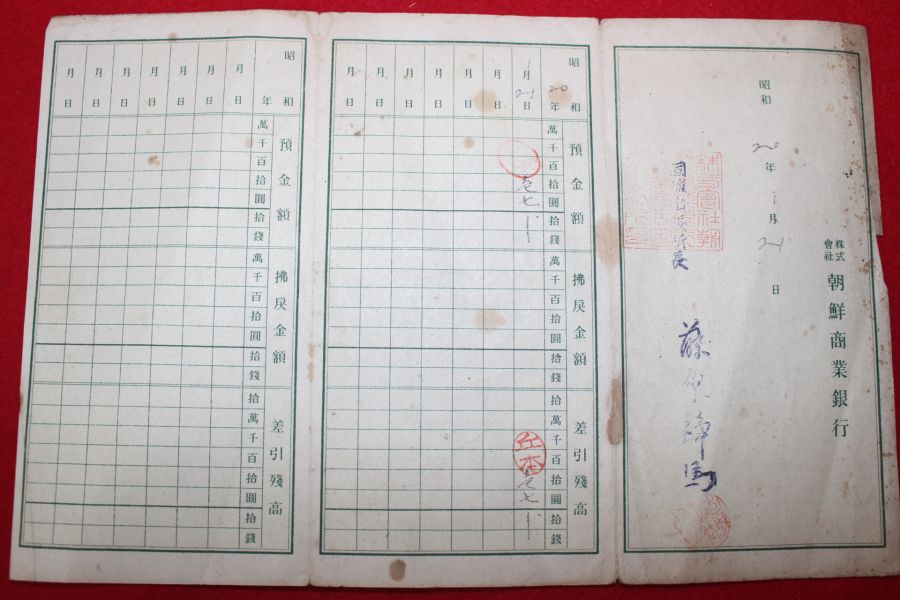 株式會社 朝鮮商業銀行
昭和 20年 1月 21日
支店長
株式會社朝
昭和 20年
預金額
拂戻金額
差引殘高
萬千百拾圓拾錢
萬千百拾圓拾錢
拾萬千百拾圓拾錢
1月21日
丘本
月 日
月 日
月 日
月 日
月 日
月 日
昭和 年
預金額
拂戻金額
差引殘高
萬千百拾圓拾錢
萬千百拾圓拾錢
拾萬千百拾圓拾錢
月 日
月 日
月 日
月 日
月 日
月 日
月 日